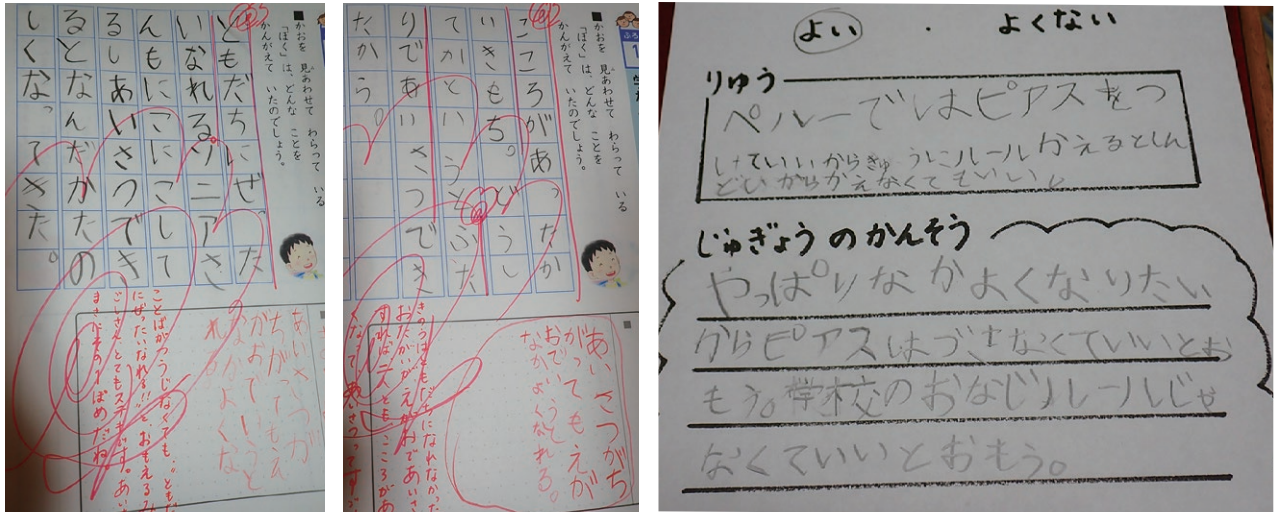 かおを 見あわせて わらって いる
「ぼく」は、どんな ことを
かんがえて いたのでしょう。
ともだちにぜった
いなれるソニアさ
んもにこにこして
るしあいさつでき
るとなんだかたの
しくなってきた。
あいさつが
ちがってもえ
がおでいうと
なかよくな
れ
ことばがつうじなくても、"ともだ
にぜったいなれる!!"とおもえるみ
とてもステキです。あい
まさにその1っぽめだね
かおを 見あわせて わらって いる
「ぼく」は、どんな ことを
かんがえて いたのでしょう。
こころがあったか
いきもち。どうし
てかというとふた
りであいさつでき
たから。
あいさつがち
がってもえが
おでいうと
なかよくなれる。
きのうはともだちになれなかった
おたがいがえがおであいさ
すれば二人ともこころがあ
よい ・ よくない
りゆう
ペルーでしはピアスをつ
けていいからきゅうにルールかえるとしん
どいからかえなくてもいい
じゅぎょうのかんそう
やっぱりなかよくなりたい
からピアスはづさなくていいとお
もう。学校のおなじルールじゃ
なくていいとおもう。